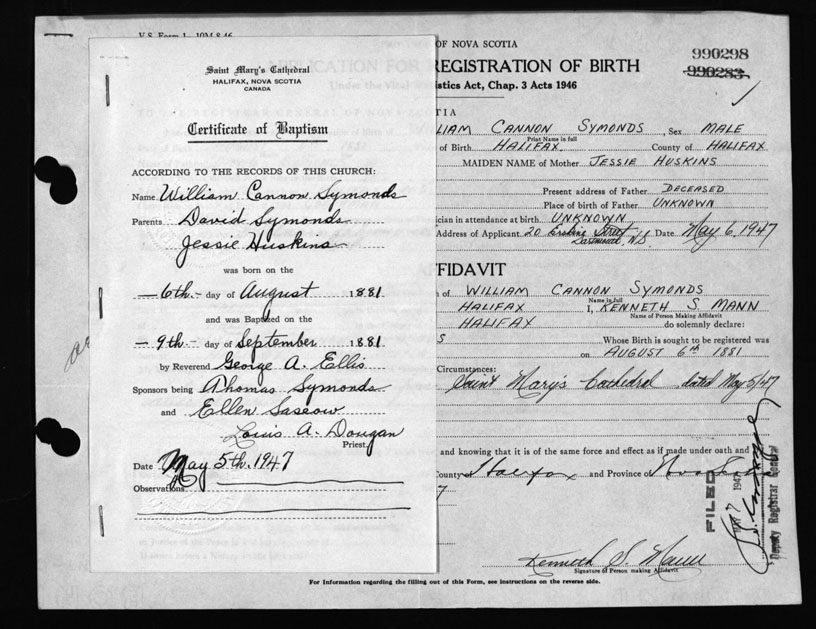 V.S. Form 1 10M 8-46
Saint Mary's Cathedral
HALIFAX, NOVA SCOTIA
CANADA
Certificate of Baptism
ACCORDING TO THE RECORDS OF THIS CHURCH:
Name William Cannon Symonds
Parents David Symonds
Jessie Huskins
was born on the
6th day of August 1881
and was Baptized on the
9th day of September 1881
by Reverend George A. Ellis
Sponsors being Thomas Symonds
and Ellen
Louis A. Dougan
Priest.
Date May 5th. 1947
Observations
OF NOVA SCOTIA
APPLICATION FOR REGISTRATION OF BIRTH
Under the Vital istics Act, Chap. 3 Acts 1946
990298
990283
TIA
LIAM CANNON SYMONDS, Sex MALE
Print Name in full
of Birth HALIFAX. County of HALIFAX
MAIDEN NAME of Mother JESSIE HUSKINS
Present address of Father DECEASED
Place of birth of Father UNKNOWN
ician in attendance at birth UNKNOWN
Address of Applicant 20 Erskine Street Date May 6, 1947
Dartmouth, N.S.
FFIDAVIT
of WILLIAM CANNON SYMONDS
Name in full
HALIFAX I, KENNETH S. MANN
Name of Person Making Affidavit
HALIFAX do solemnly declare:
S Whose Birth is sought to be registered was
on AUGUST 6th 1881
Circumstances:
Saint Mary's Cathedral dated May 5/47
and knowing that it is of the same force and effect as if made under oath and
County Halifax and Province of Nova Scotia
7
FILED
MAY 7 1947
Deputy Registrar General
Kenneth S. Mann
Signature of Person making Affidavit
For Information regarding the filling out of this Form, see instructions on the reverse side.